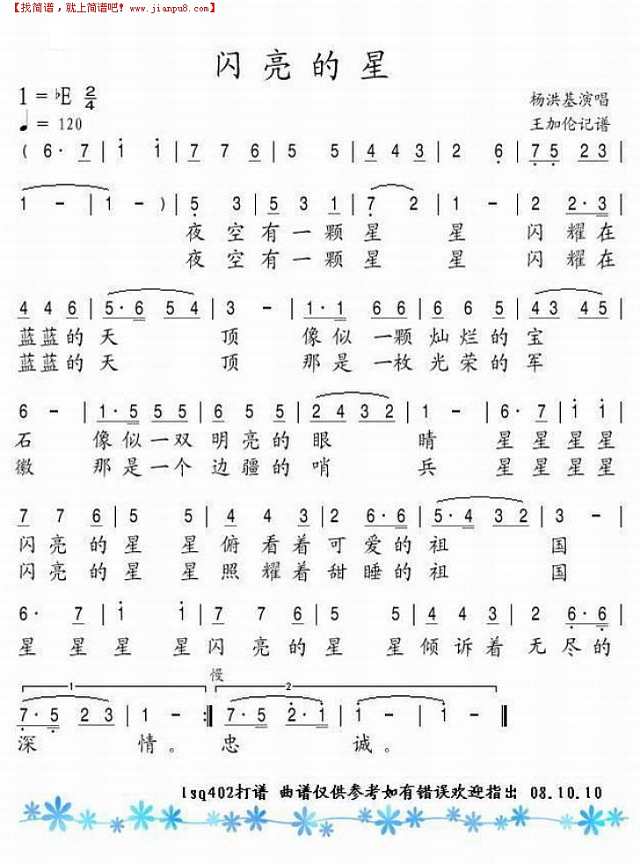 【找简谱，就上简谱吧! www.jianpu8.com】
闪亮的星
1 = ♭E 2/4
杨洪基演唱
♩ = 120
王加伦记谱
( 6· 7 | i i | 7 7 6 | 5 5 | 4 4 3 | 2 6 | 7 5 2 3 |
1 - | 1 - ) | 5 3 | 5 3 1 | 7 2 | 1 - | 2 2·3 |
夜空有一颗星 星 闪耀在
夜空有一颗星 星 闪耀在
4 4 6 | 5·6 5 4 | 3 - | 1·1 6 6 | 6 6 5 | 4 3 4 5 |
蓝蓝的天 顶 像似一颗灿烂的宝
蓝蓝的天 顶 那是一枚光荣的军
6 - | 1·5 5 5 | 6 5 5 | 2 4 3 2 | 1 - | 6· 7 | i i |
石 像似一双明亮的眼 睛 星星星星
徽 那是一个边疆的哨 兵 星星星星
7 7 6 | 5 5 | 4 4 3 | 2 6·6 | 5·4 3 2 | 3 - |
闪亮的星星俯看着可爱的祖 国
闪亮的星星照耀着甜睡的祖 国
6· 7 | i i | 7 7 6 | 5 5 | 4 4 3 | 2 6·6 |
星星星星闪亮的星星倾诉着无尽的
慢
1 2
7·5 2 3 | 1 - :‖ 7·5 2·1 | 1 - | 1 - ‖
深 情。忠 诚。
lsq402打谱 曲谱仅供参考如有错误欢迎指出 08.10.10